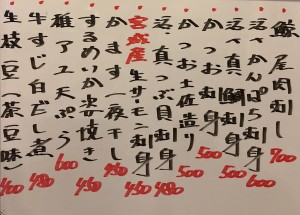 鯨 尾肉刺し 700
活〆かんぱち刺身 600
活〆真鯛刺身 500
かつお刺身 500
かつお土佐造り 500
活 真つぶ貝刺 480
宮城産 生サーモン刺身 450
かます一夜干し 450
するめいか丸焼き 450
稚アユ天ぷら 600
牛すじ白だし煮 480
生枝豆(茶豆味) 400